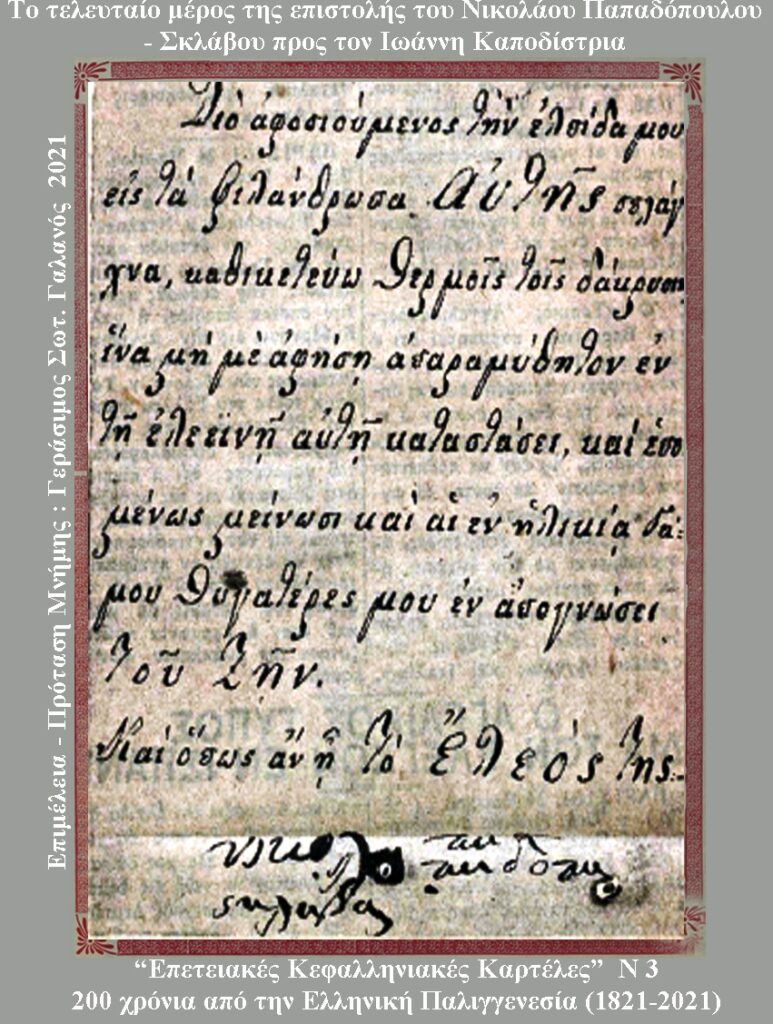 Το τελευταίο μέρος της επιστολής του Νικολάου Παπαδόπουλου
- Σκλάβου προς τον Ιωάννη Καποδίστρια
Επιμέλεια - Πρόταση Μνήμης : Γεράσιμος Σωτ. Γαλανός 2021
Διό ἀφοσιούμενος τὴν ἐλπίδα μου
εἰς τὰ φιλάνθρωπα Αὐτῆς σπλάγ
χνα, καθικετεύω θερμοῖς τοῖς δάκρυσιν
ἵνα μὴ μὲ ἀφήσῃ ἀπαραμύθητον ἐν
τῇ ἐλεεινῇ αὐτῇ καταστάσει, καὶ ἑπο
μένως μείνωσι καὶ αἱ ἐν ἡλικίᾳ
μου θυγατέρες μου ἐν ἀπογνώσει
τοῦ ζῆν.
Καὶ ὅπως ἂν ᾖ τὸ ἔλεός της.
“Επετειακές Κεφαλληνιακές Καρτέλες” Ν 3
200 χρόνια από την Ελληνική Παλιγγενεσία (1821-2021)